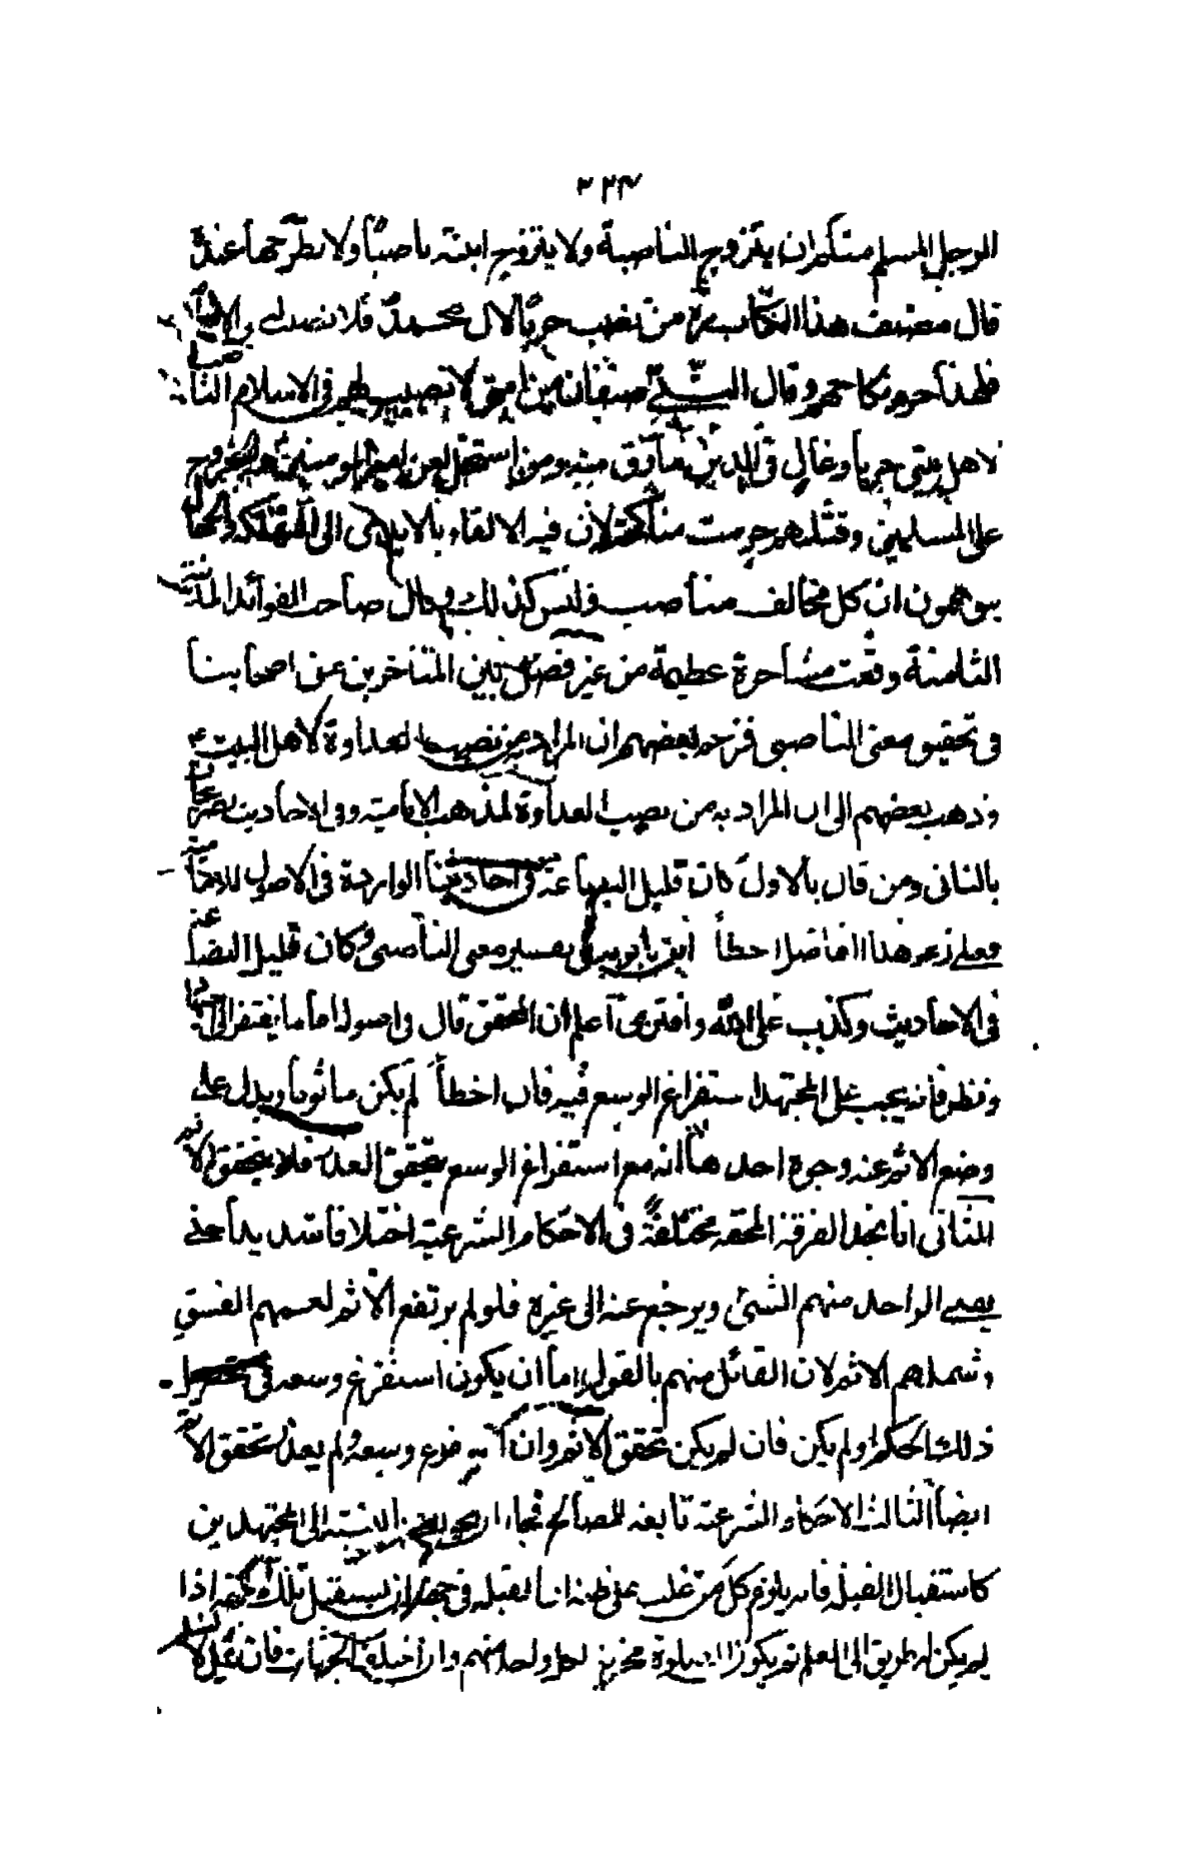 ٢٢٤
الرجل المسلم منكم ان يتزوج الناصبة ولا يتزوج ابنته ناصبيا ولا يطرحها عنده
قال مصنف هذا الكتاب ره من نصب حربا لال محمد فلا نصيب لهم في الاسلام
فلهذا حرم نكاحهم وقال النبي ص صنفان من امتي لا نصيب لهم في الاسلام الناصب
لاهل بيتي حربا وغال في الدين مارق منه ومن استحل لعن امير المؤمنين والخروج
على المسلمين وقتلهم حرمت مناكحته لان فيه الالقاء بالايدي الى التهلكة والجهال
يتوهمون ان كل مخالف ناصب وليس كذلك وقال صاحب الفوائد المدنية
الثامنة وقعت مشاجرة عظيمة من غير فصل بين المتأخرين من اصحابنا
في تحقيق معنى الناصبي فزعم بعضهم ان المراد من نصب العداوة لاهل البيت ع
وذهب بعضهم الى ان المراد به من نصب العداوة لمذهب الامامية وفي الاحاديث تصريحات
بالثاني ومن قال بالاول كان قليل البضاعة في احاديثنا الواردة في الاصول
فعلى زعم هذا الفاضل اخطأ ابن بابويه في تفسير معنى الناصبي وكان قليل البضاعة
في الاحاديث وكذب على الله وافترى اعلم ان المحقق قال في اصوله اما ما يفتقر الى اجتهاد
ونظر فانه يجب على المجتهد استفراغ الوسع فيه فان اخطأ لم يكن مأثوما ويدل على
وضع الاثم عنه وجوه احدها انه مع استفراغ الوسع يتحقق العذر فلا يتحقق الاثم
الثاني انا نجد الفرقة المحقة مختلفة في الاحكام الشرعية اختلافا شديدا حتى
يفتي الواحد منهم الشئ ويرجع عنه الى غيره فلو لم يرتفع الاثم لعمهم الفسق
وشملهم الاثم لان القائل منهم بالقول اما ان يكون استفرغ وسعه في
ذلك الحكم او لم يكن فان لم يكن تحقق الاثم وان وسعه ولم يعذر تحقق الاثم
ايضا الثالث الاحكام الشرعية تابعة للمصالح فجاز بالنسبة الى المجتهدين
كاستقبال القبلة فانه يلزم كل من غلب على ظنه ان القبلة في جهة ان يستقبل تلك الجهة اذا
لم يكن له طريق الى العلم ثم يكون الصلوة مجزية لكل واحد منهم وان اختلفت الجهات فان قيل لا